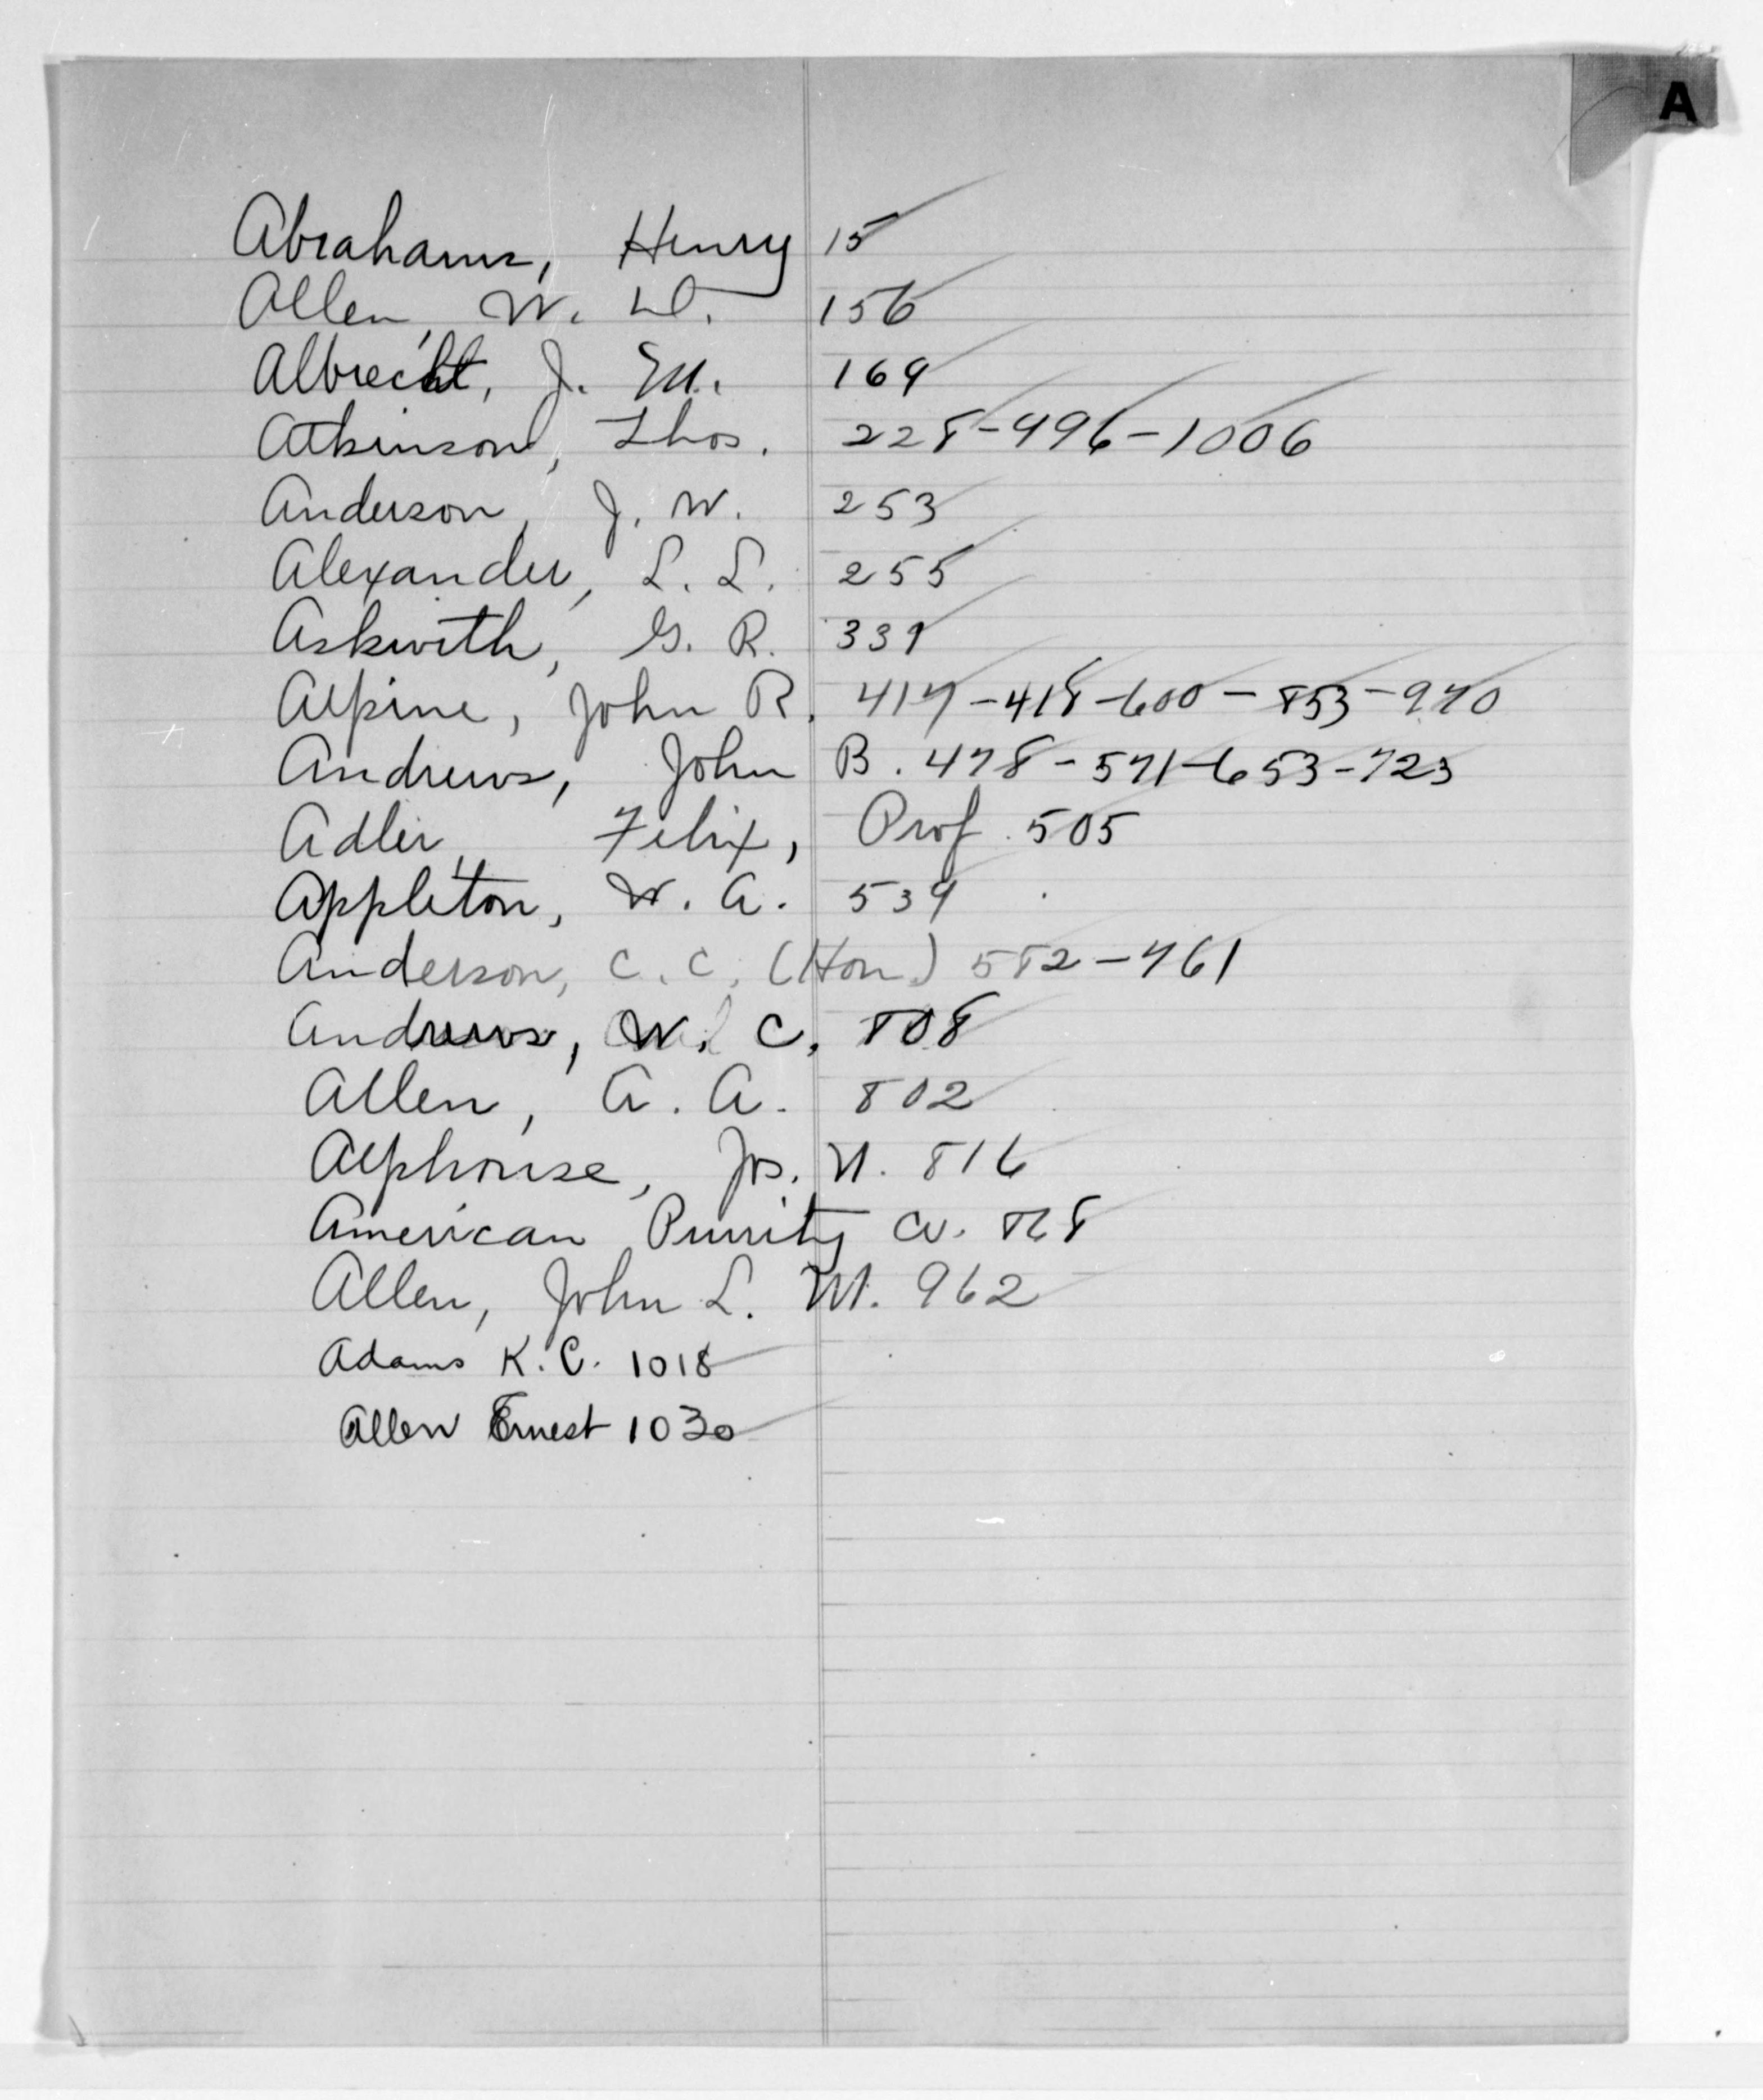 A
Abrahams, Henry 15
Allen, W. D. 156
Albrecht, J. M. 169
Atkinson, Thos. 228-996-1006
Anderson, J. W. 253
Alexander, L. L. 255
Askwith, G. R. 339
Alpine, John R. 417-418-600-853-970
Andrews, John B. 478-571-653-723
Adler, Felix, Prof. 505
Appleton, W. A. 539
Anderson, C. C. (Hon) 582-761
Andrews, W. C. 808
Allen, A. A. 802
Alphonse, Jos. N. 816
American Purity Co.
Allen, John L. M. 962
Adams K. C. 1018
Allen Ernest 1030